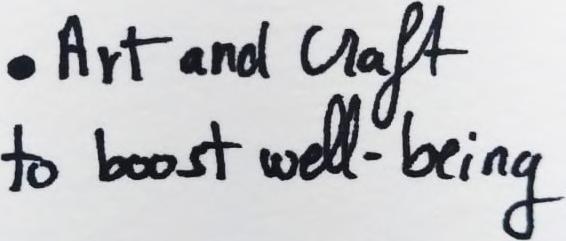 • Art and Craft
to boost well-being